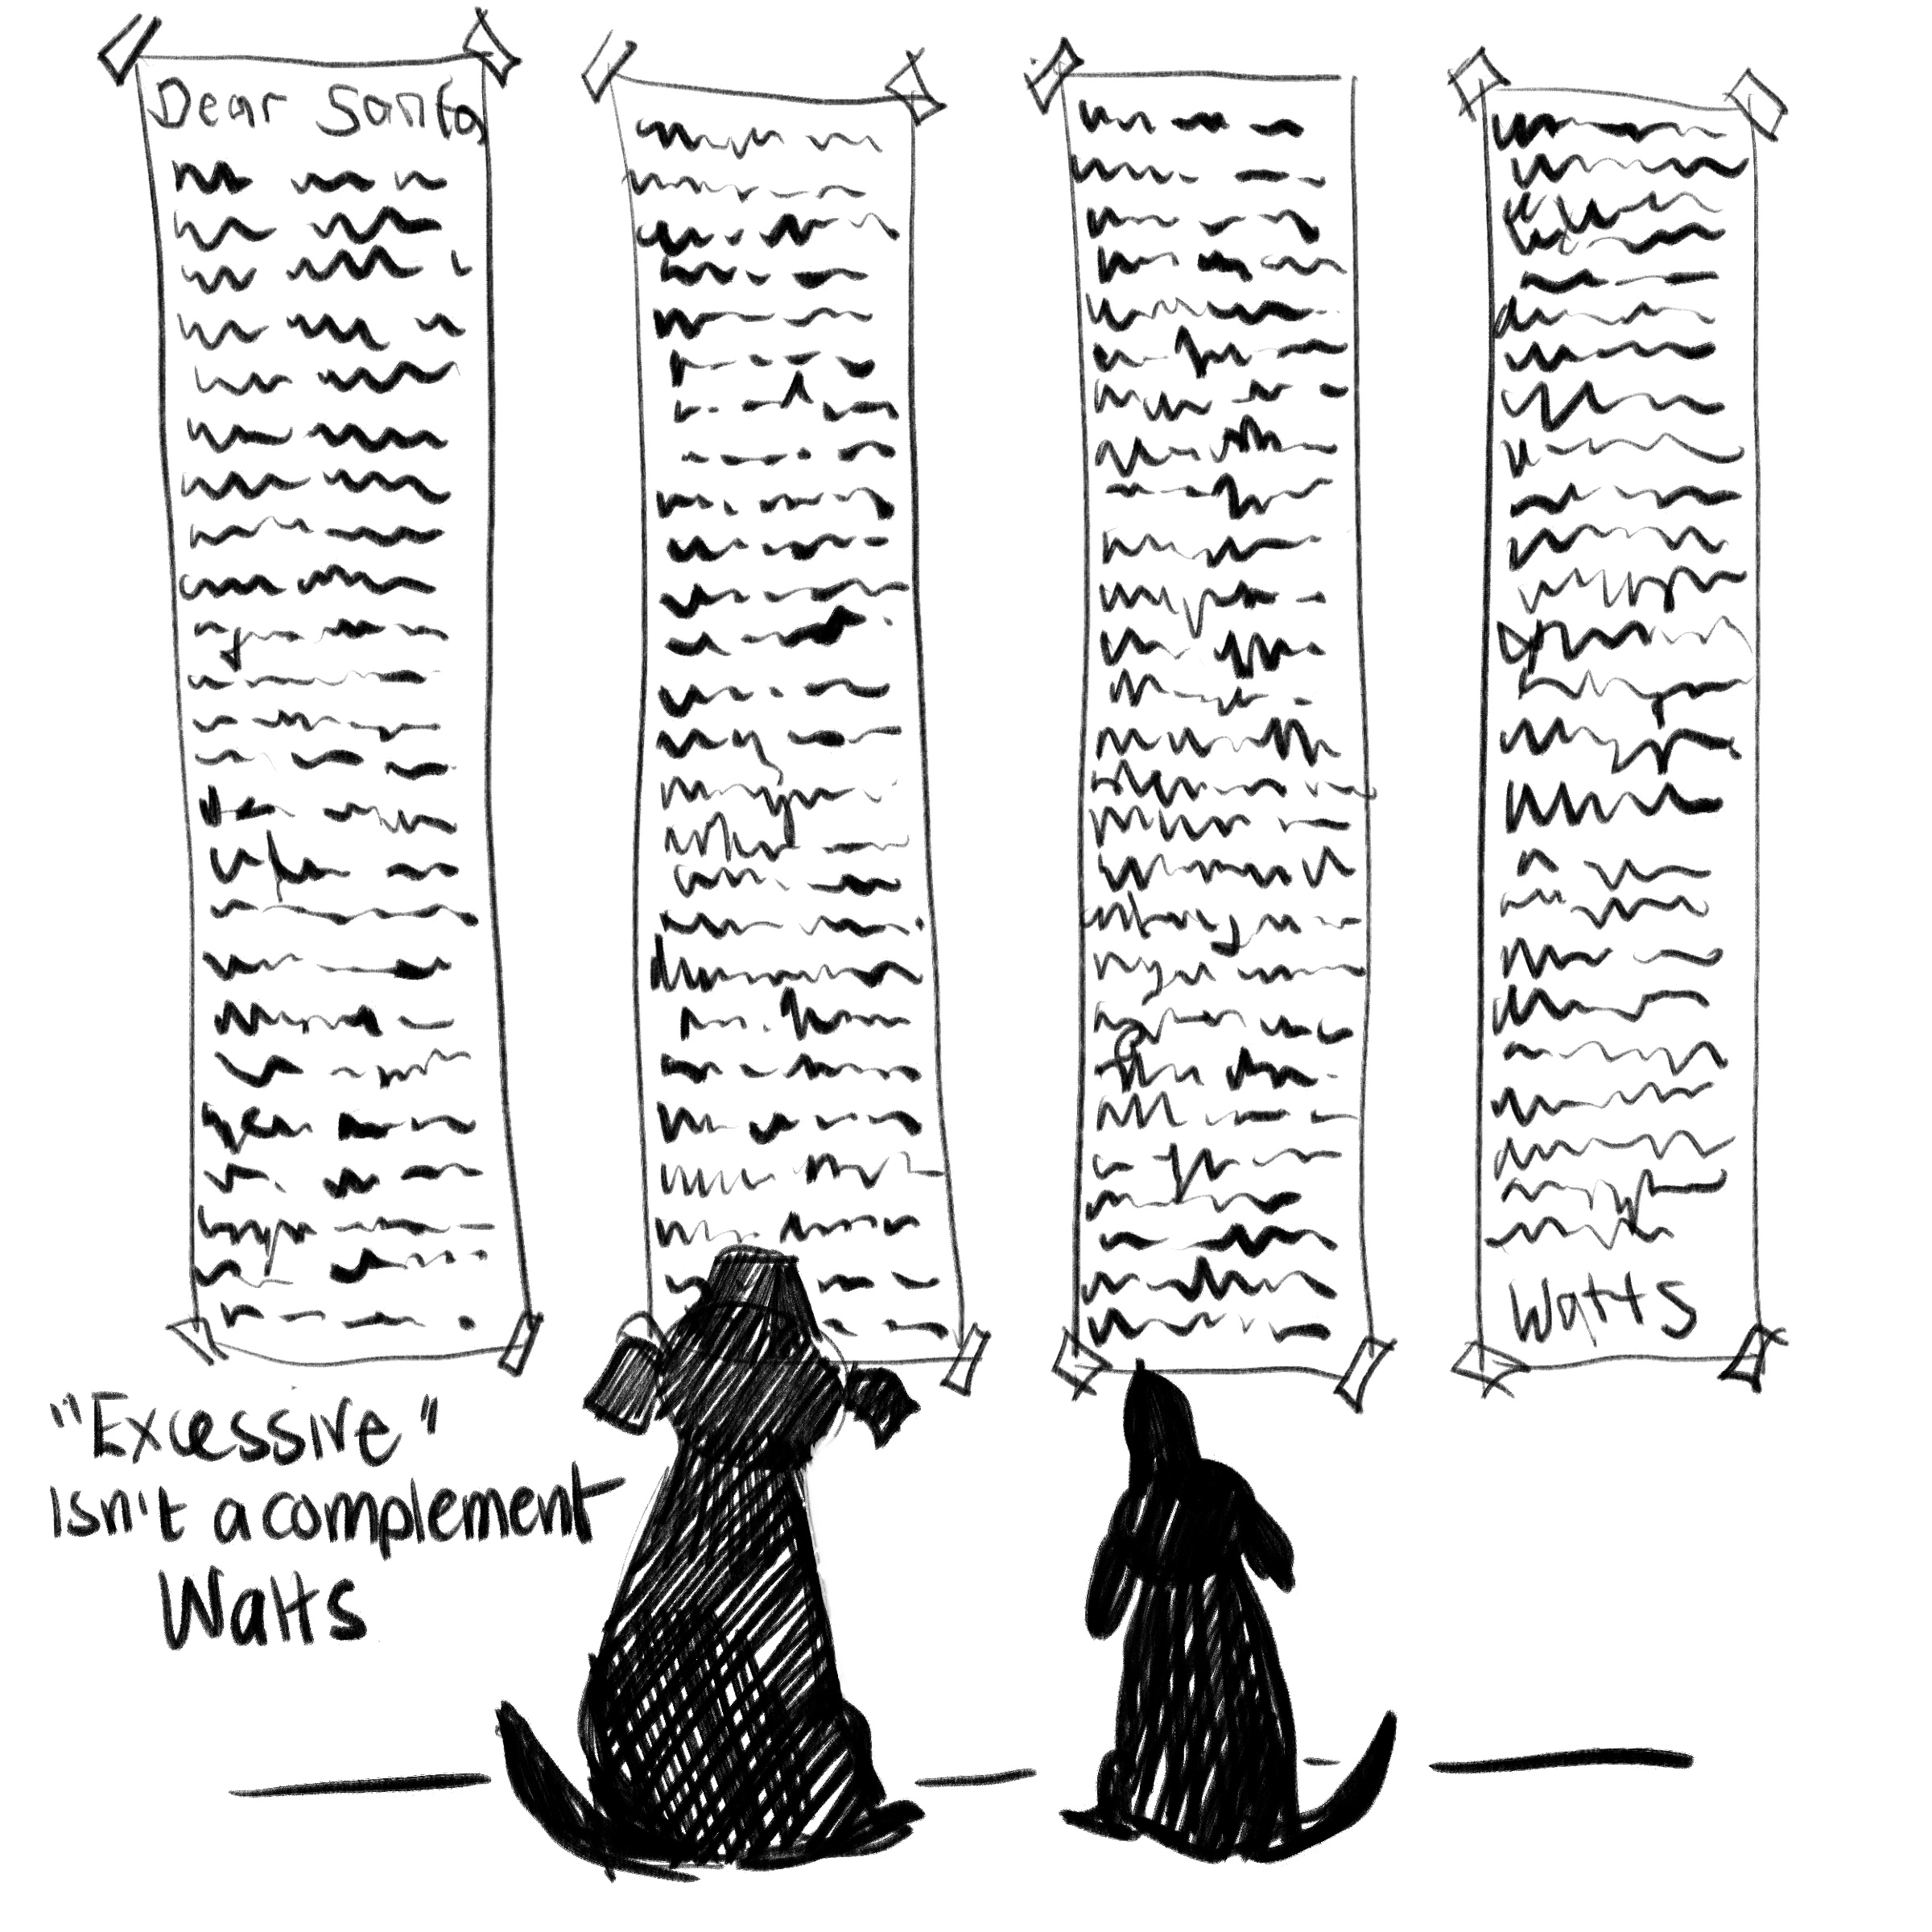 Dear Santa
Watts
"Excessive"
Isn't a complement
Watts